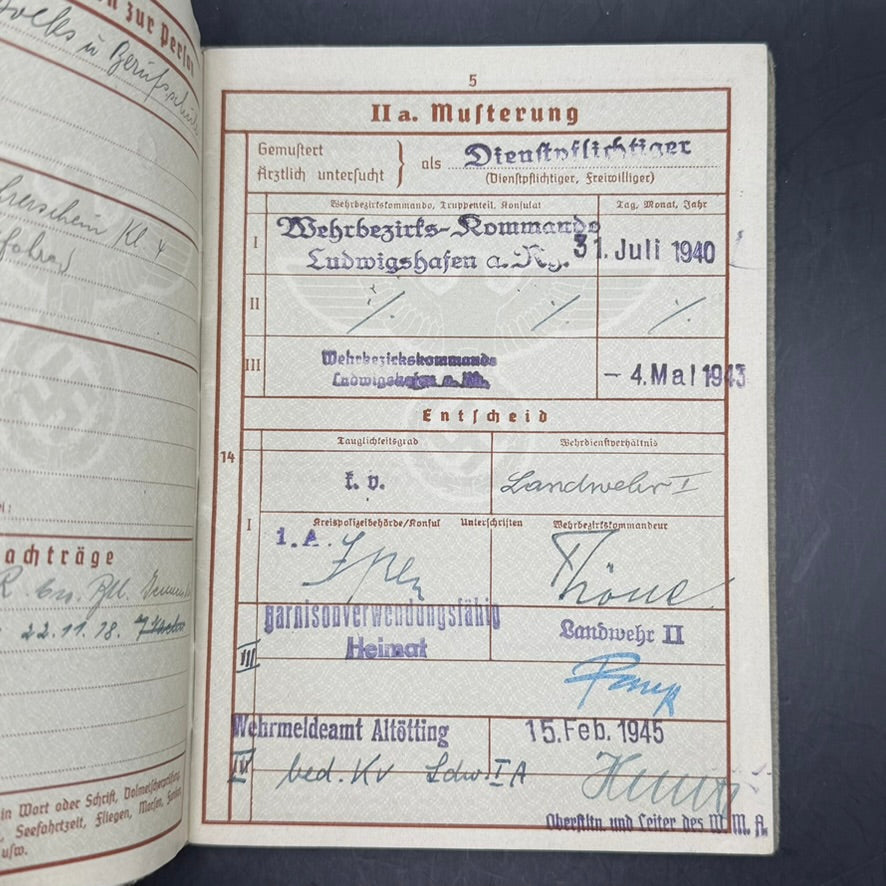 Volks u Berufsschule
n zur Person
Führerschein Kl 4
fahrad
achträge
22.11.18.
in Wort oder Schrift, Dolmetscherprüfung
Seefahrtzeit, Fliegen, Morsen, Funken
usw.
5
II a. Musterung
Gemustert
Ärztlich untersucht } als Dienstpflichtiger
(Dienstpflichtiger, Freiwilliger)
Wehrbezirkskommando, Truppenteil, Konsulat Tag, Monat, Jahr
I Wehrbezirks-Kommando
Ludwigshafen a. Rh. 31. Juli 1940
II ·/. ·/. ·/.
III Wehrbezirkskommando
Ludwigshafen a. Rh. – 4. Mai 1943
Entscheid
14 Tauglichkeitsgrad Wehrdienstverhältnis
k. v. Landwehr I
I Kreispolizeibehörde/Konsul Unterschriften Wehrbezirkskommandeur
I. A. Thöne
garnisonverwendungsfähig
Heimat Landwehr II
III
Wehrmeldeamt Altötting 15. Feb. 1945
IV bed. Kv Ldw. I A
Oberstltn. und Leiter des W. M. A.